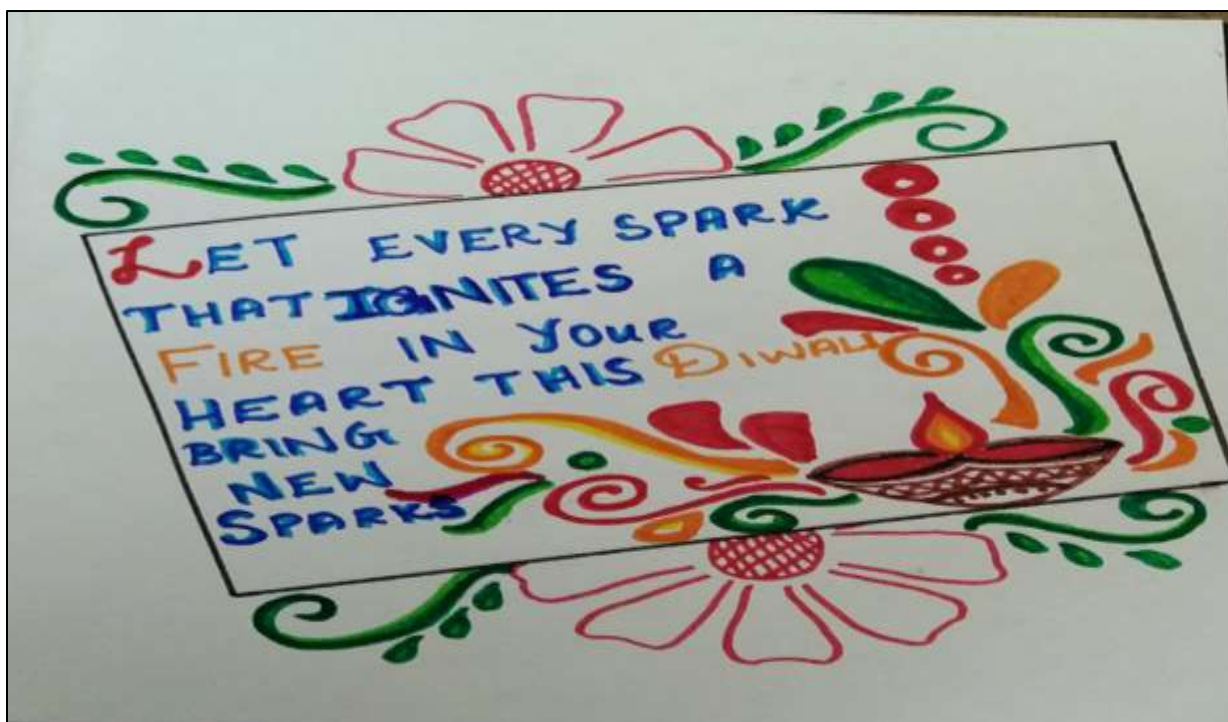 LET EVERY SPARK
THAT IGNITES A
FIRE IN YOUR
HEART THIS DIWALI
BRING
NEW
SPARKS